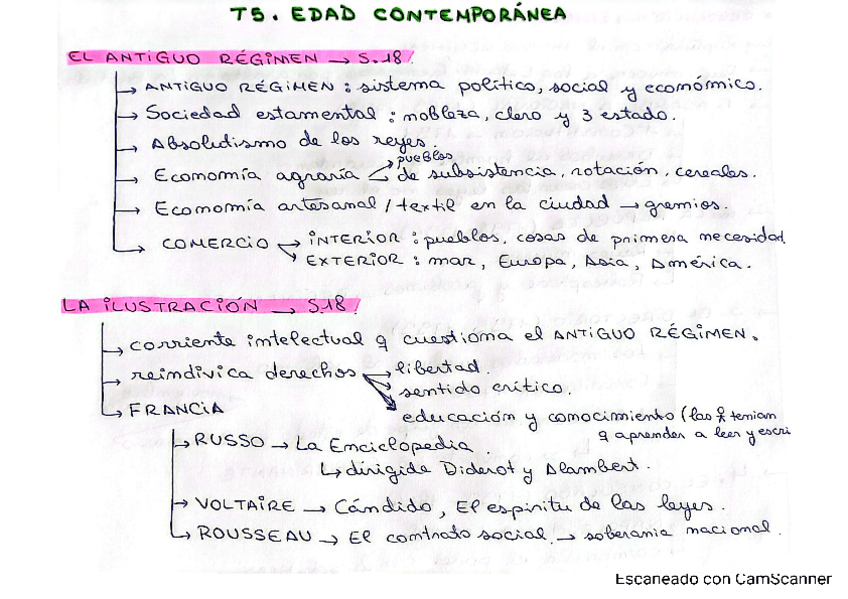 T5. EDAD CONTEMPORÁNEA
EL ANTIGUO RÉGIMEN → S.18
→ ANTIGUO RÉGIMEN : sistema político, social y económico.
→ Sociedad estamental : nobleza, clero y 3 estado.
→ Absolutismo de los reyes.
→ Economía agraria → pueblos
→ de subsistencia, rotación, cereales.
→ Economía artesanal / textil en la ciudad → gremios.
→ COMERCIO → INTERIOR : pueblos, cosas de primera necesidad
→ EXTERIOR : mar, Europa, Asia, América.
LA ILUSTRACIÓN → S.18
→ corriente intelectual q cuestiona el ANTIGUO RÉGIMEN.
→ reindivica derechos → libertad.
→ sentido crítico.
→ educación y conocimiento (las tenian
q aprender a leer y escri
→ FRANCIA
→ RUSSO → La Enciclopedia
↳ dirigida Diderot y Alambert.
→ VOLTAIRE → Cándido, El espíritu de las leyes.
→ ROUSSEAU → El contrato social → soberania nacional.
Escaneado con CamScanner